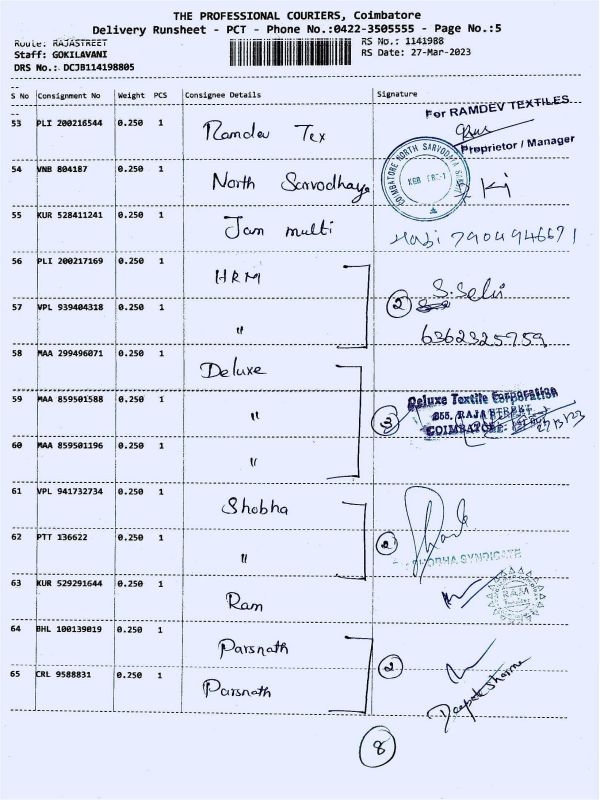 THE PROFESSIONAL COURIERS, Coimbatore
Delivery Runsheet - PCT - Phone No.:0422-3505555 - Page No.:5
Route: RAJASTREET
RS No.: 1141988
Staff: GOKILAVANI
RS Date: 27-Mar-2023
DRS No.: DCJB114198805
S No Consignment No Weight PCS Consignee Details Signature
For RAMDEV TEXTILES
53 PLI 200216544 0.250 1 Ramdev Tex
Proprietor / Manager
COIMBATORE NORTH SARVODAYA
54 VNB 804187 0.250 1 North Sarvodhaya
55 KUR 528411241 0.250 1 Jam multi
7904946671
56 PLI 200217169 0.250 1 HRM
2 S. Selvi
57 VPL 939404318 0.250 1 "
6362325959
58 MAA 299496071 0.250 1 Deluxe
59 MAA 859501588 0.250 1 "
3 Deluxe Textile Corporation
RAJA STREET
COIMBATORE
27/3/23
60 MAA 859501196 0.250 1 "
61 VPL 941732734 0.250 1 Shobha
62 PTT 136622 0.250 1 " 2
SHOBHA SYNDICATE
63 KUR 529291644 0.250 1 Ram
RAM
64 BHL 100139019 0.250 1 Parsnath
2
65 CRL 9588831 0.250 1 Parsnath
Deepak Sharma
8